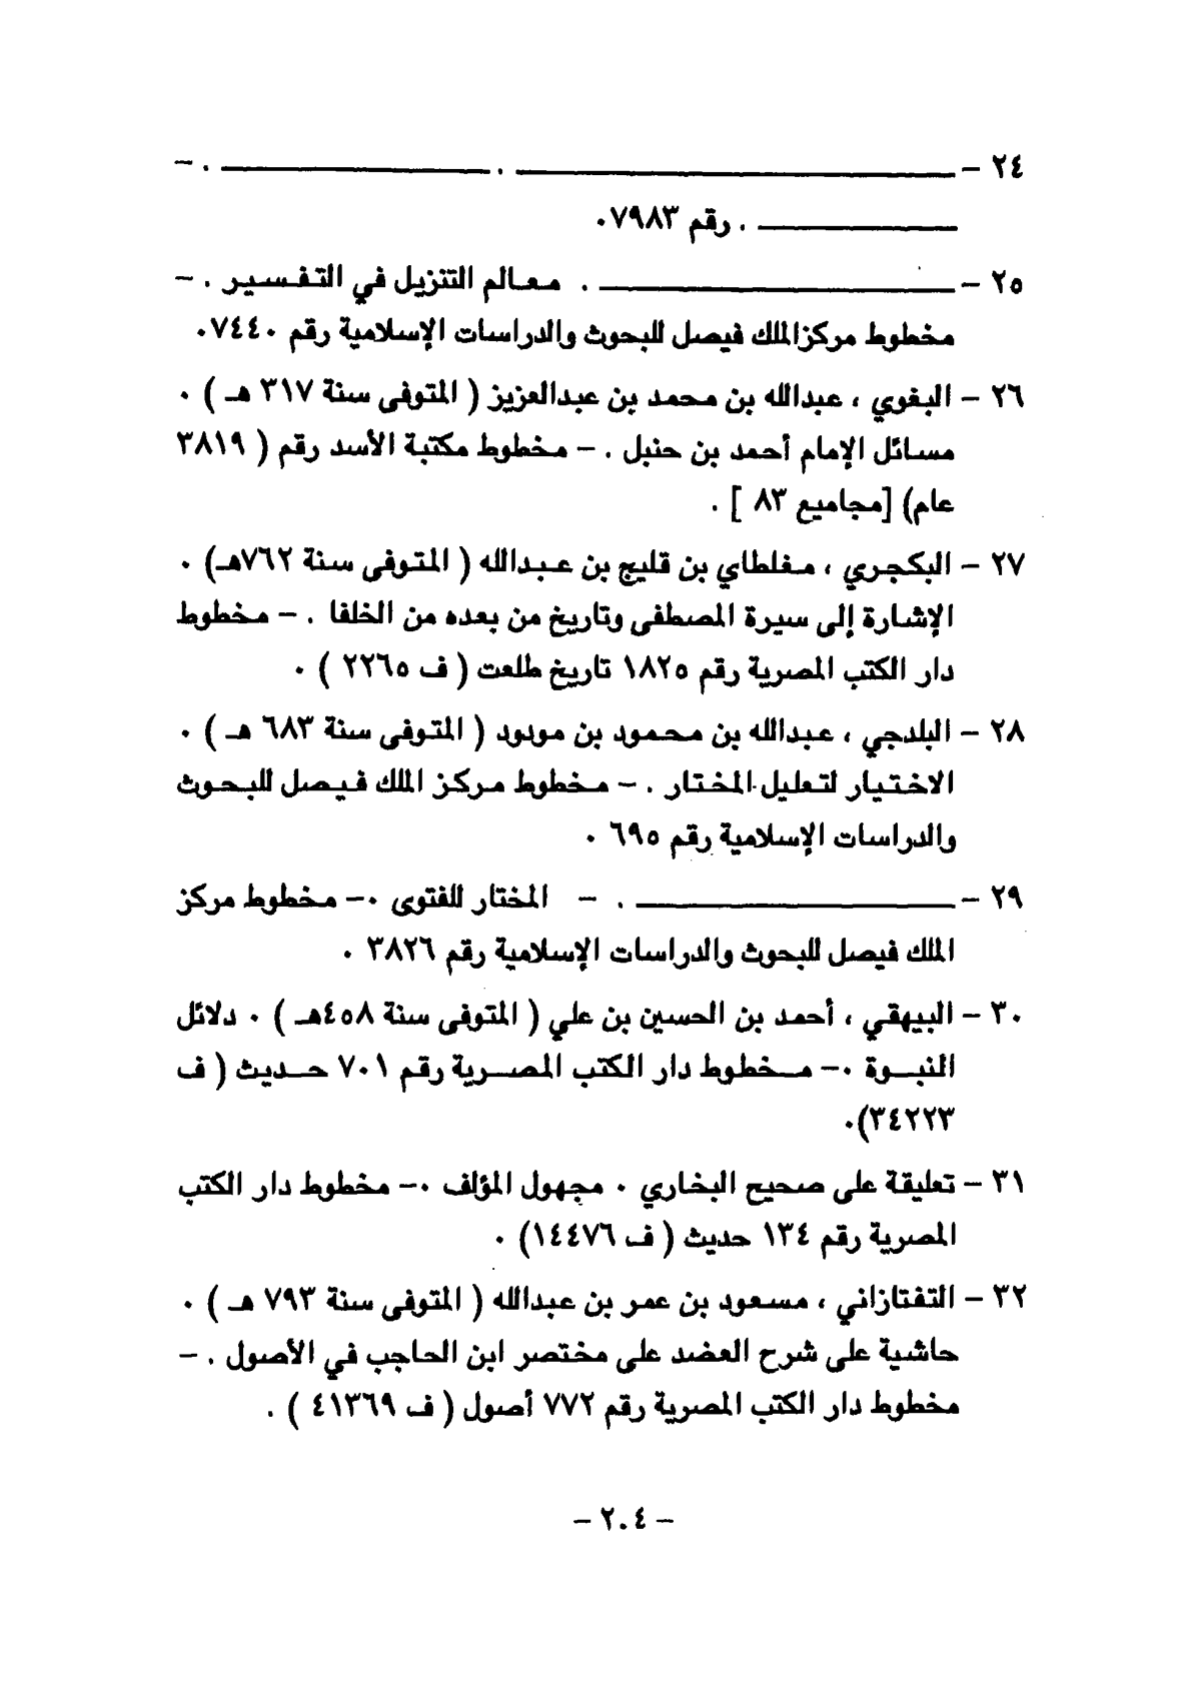 ٢٤ - ــــــــــــــــــــ . ــــــــــــــــــــ . -
ــــــــــــــــــــ . رقم ٧٩٨٣٠
٢٥ - ــــــــــــــــــــ . معالم التنزيل في التفسير . -
مخطوط مركز الملك فيصل للبحوث والدراسات الإسلامية رقم ٧٤٤٠٠
٢٦ - البغوي ، عبدالله بن محمد بن عبدالعزيز ( المتوفى سنة ٣١٧ هـ ) ٠
مسائل الإمام أحمد بن حنبل . - مخطوط مكتبة الأسد رقم ( ٣٨١٩
عام) [مجاميع ٨٣ ] .
٢٧ - البكجري ، مغلطاي بن قليج بن عبدالله ( المتوفى سنة ٧٦٢هـ) ٠
الإشارة إلى سيرة المصطفى وتاريخ من بعده من الخلفا . - مخطوط
دار الكتب المصرية رقم ١٨٢٥ تاريخ طلعت ( ف ٢٢٦٥ ) ٠
٢٨ - البلدجي ، عبدالله بن محمود بن مودود ( المتوفى سنة ٦٨٣ هـ ) ٠
الاختيار لتعليل المختار . - مخطوط مركز الملك فيصل للبحوث
والدراسات الإسلامية رقم ٦٩٥ ٠
٢٩ - ــــــــــــــــــــ . - المختار للفتوى ٠- مخطوط مركز
الملك فيصل للبحوث والدراسات الإسلامية رقم ٣٨٢٦ ٠
٣٠ - البيهقي ، أحمد بن الحسين بن علي ( المتوفى سنة ٤٥٨هـ ) ٠ دلائل
النبوة ٠- مخطوط دار الكتب المصرية رقم ٧٠١ حديث ( ف
٣٤٢٢٣)٠
٣١ - تعليقة على صحيح البخاري ٠ مجهول المؤلف ٠- مخطوط دار الكتب
المصرية رقم ١٣٤ حديث ( ف ١٤٤٧٦) ٠
٣٢ - التفتازاني ، مسعود بن عمر بن عبدالله ( المتوفى سنة ٧٩٣ هـ ) ٠
حاشية على شرح العضد على مختصر ابن الحاجب في الأصول . -
مخطوط دار الكتب المصرية رقم ٧٧٢ أصول ( ف ٤١٣٦٩ ) .
- ٢٠٤ -